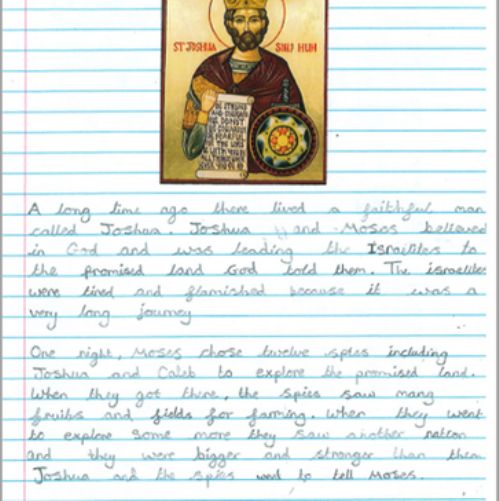 ST JOSHUA SON OF NUN
BE STRONG
AND COURAGE
A long time ago there lived a faithful man
called Joshua. Joshua and Moses believed
in God and was leading the Israilites to
the promised land God told them. The israelites
were tired and flamished because it was a
very long journey
One night, Moses chose twelve spies including
Joshua and Caleb to explore the promised land.
When they got there, the spies saw many
fruits and fields for farming. When they went
to explore some more they saw another nation
and they were bigger and stronger than them.
Joshua and the spies went to tell Moses.